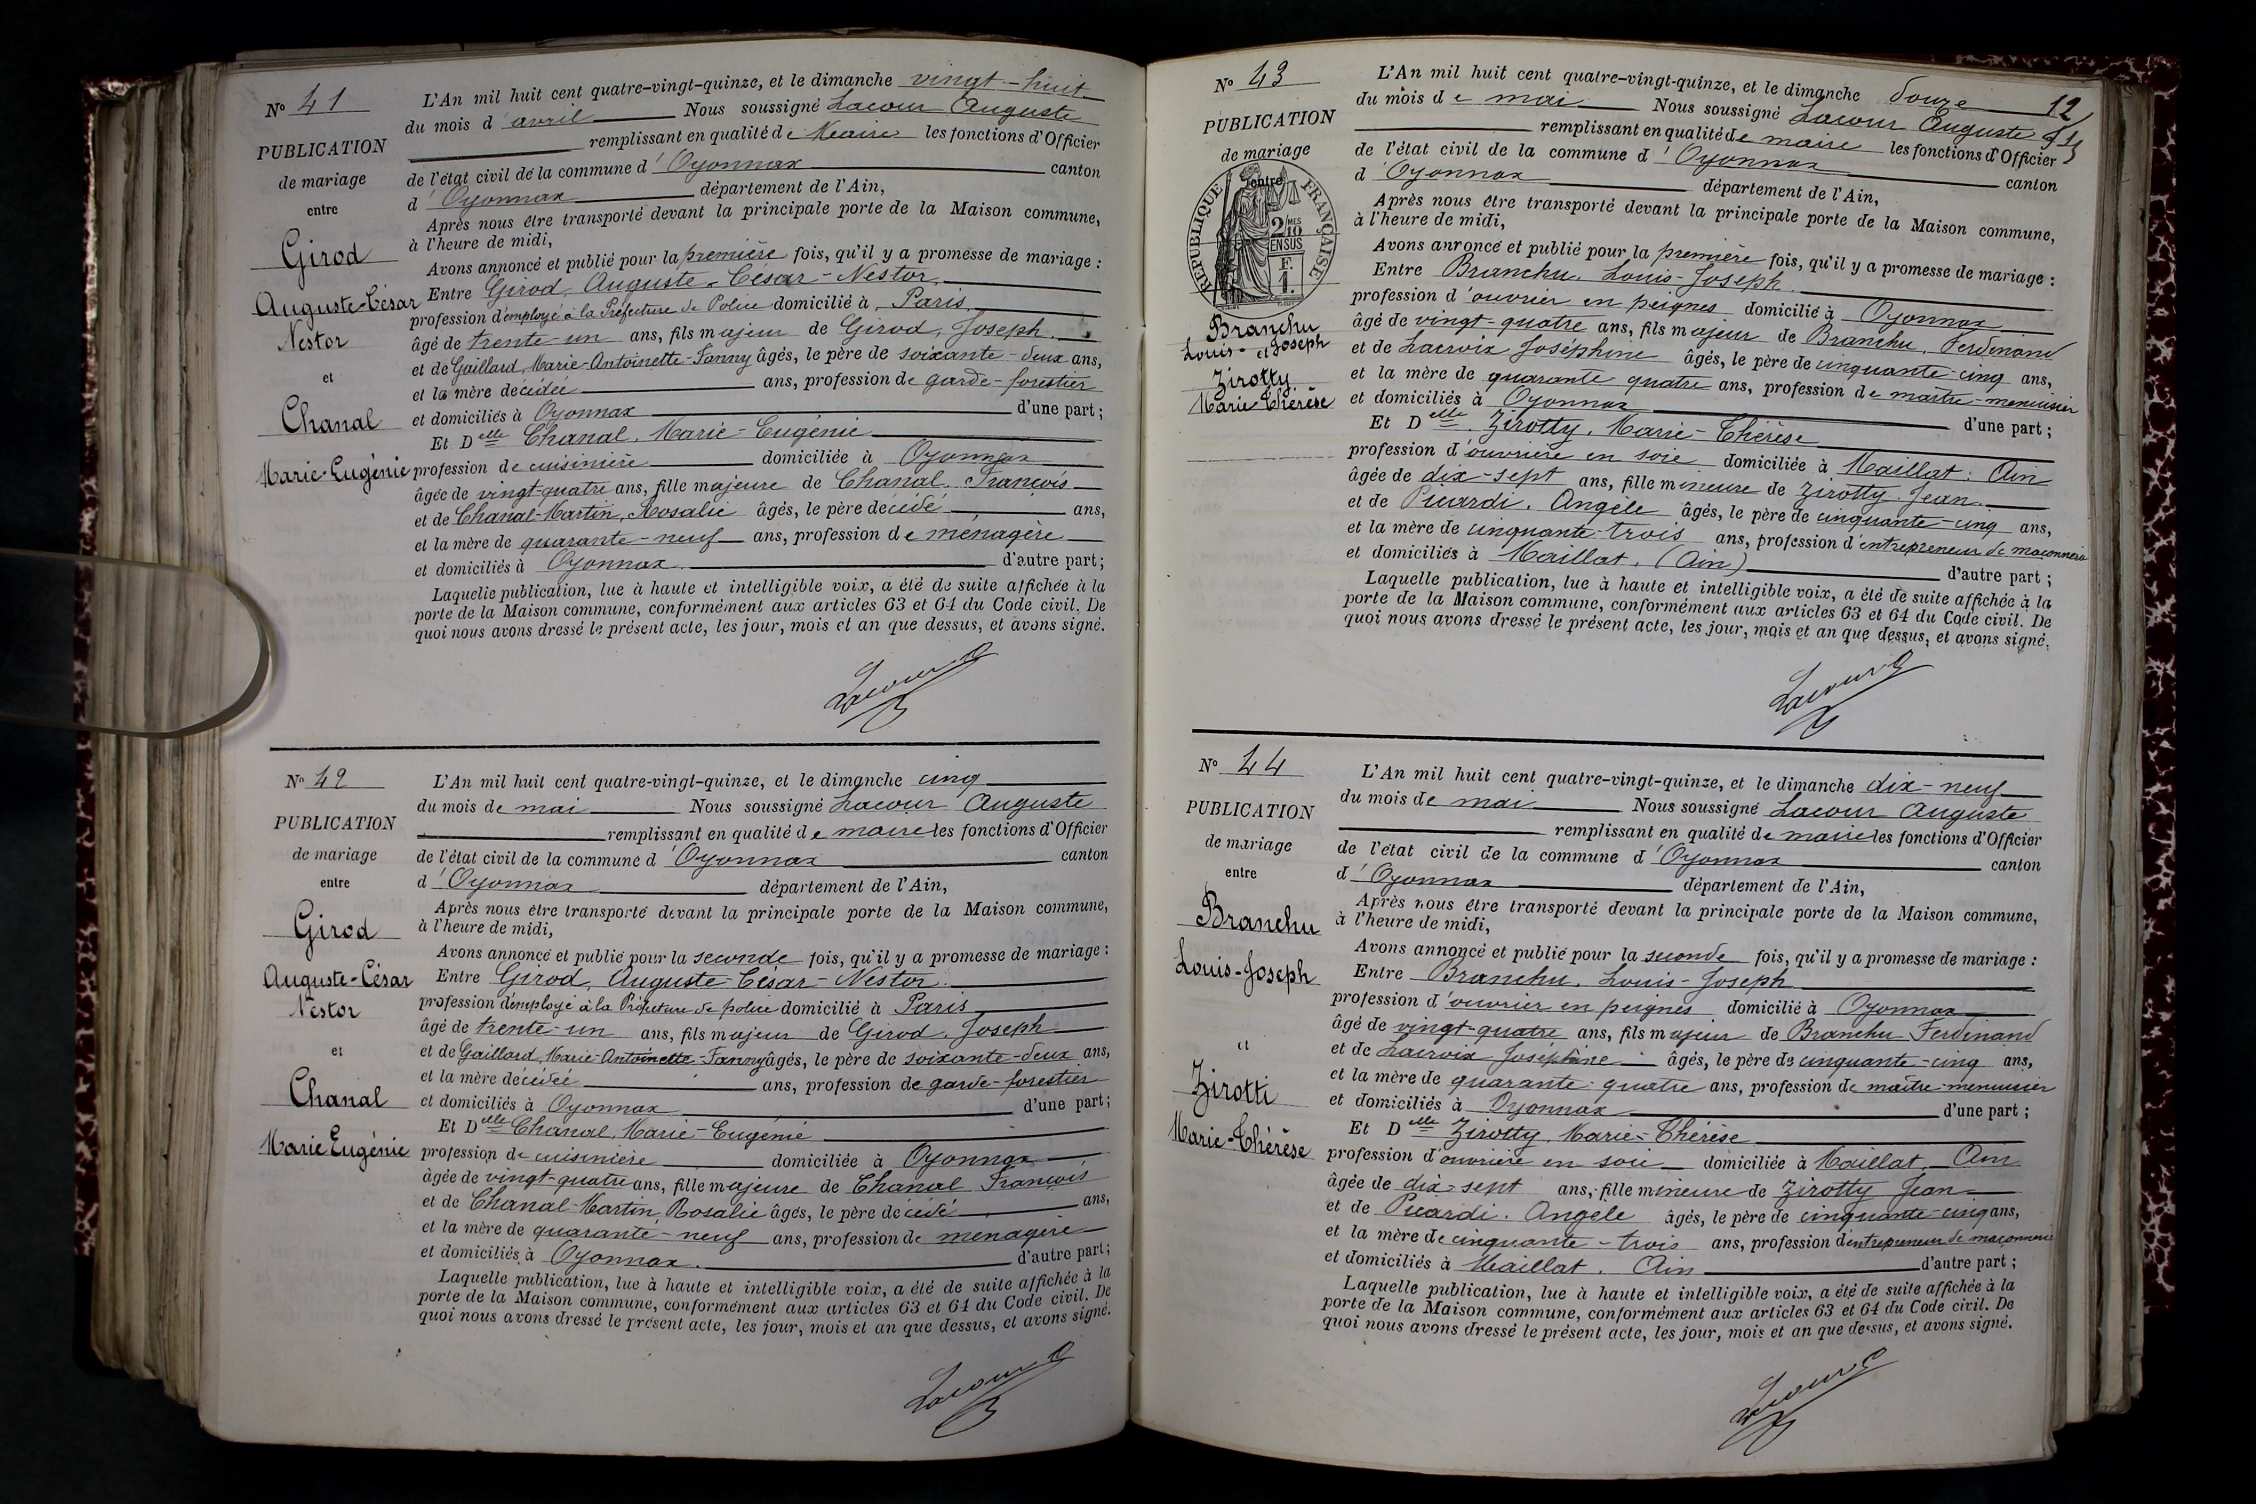 Nº 41
PUBLICATION
de mariage
entre
Girod
Auguste-César
Nestor
et
Chanal
Marie Eugénie
L'An mil huit cent quatre-vingt-quinze, et le dimanche vingt-huit
du mois d'avril Nous soussigné Lacour Auguste
remplissant en qualité de Maire les fonctions d'Officier
de l'état civil de la commune d'Oyonnax canton
d'Oyonnax département de l'Ain,
Après nous être transporté devant la principale porte de la Maison commune,
à l'heure de midi,
Avons annoncé et publié pour la première fois, qu'il y a promesse de mariage :
Entre Girod, Auguste-César-Nestor
profession d'employé à la Préfecture de Police domicilié à Paris
âgé de trente-un ans, fils majeur de Girod, Joseph
et de Gaillard, Marie-Antoinette-Fanny âgés, le père de soixante-deux ans,
et la mère décédée ans, profession de garde-forestier
et domiciliés à Oyonnax d'une part ;
Et Delle Chanal, Marie-Eugénie
profession de cuisinière domiciliée à Oyonnax
âgée de vingt-quatre ans, fille majeure de Chanal, François
et de Chanal-Martin, Rosalie âgés, le père décédé ans,
et la mère de quarante-neuf ans, profession de ménagère
et domiciliés à Oyonnax d'autre part ;
Laquelle publication, lue à haute et intelligible voix, a été de suite affichée à la
porte de la Maison commune, conformément aux articles 63 et 64 du Code civil. De
quoi nous avons dressé le présent acte, les jour, mois et an que dessus, et avons signé.
Lacour A
Nº 42
PUBLICATION
de mariage
entre
Girod
Auguste-César
Nestor
et
Chanal
Marie Eugénie
L'An mil huit cent quatre-vingt-quinze, et le dimanche cinq
du mois de mai Nous soussigné Lacour Auguste
remplissant en qualité de maire les fonctions d'Officier
de l'état civil de la commune d'Oyonnax canton
d'Oyonnax département de l'Ain,
Après nous être transporté devant la principale porte de la Maison commune,
à l'heure de midi,
Avons annoncé et publié pour la seconde fois, qu'il y a promesse de mariage :
Entre Girod, Auguste-César-Nestor
profession d'employé à la Préfecture de police domicilié à Paris
âgé de trente-un ans, fils majeur de Girod, Joseph
et de Gaillard, Marie-Antoinette-Fanny âgés, le père de soixante-deux ans,
et la mère décédée ans, profession de garde-forestier
et domiciliés à Oyonnax d'une part ;
Et Delle Chanal, Marie-Eugénie
profession de cuisinière domiciliée à Oyonnax
âgée de vingt-quatre ans, fille majeure de Chanal François
et de Chanal-Martin Rosalie âgés, le père décédé ans,
et la mère de quarante-neuf ans, profession de ménagère
et domiciliés à Oyonnax d'autre part ;
Laquelle publication, lue à haute et intelligible voix, a été de suite affichée à la
porte de la Maison commune, conformément aux articles 63 et 64 du Code civil. De
quoi nous avons dressé le présent acte, les jour, mois et an que dessus, et avons signé.
Lacour A
Nº 43
PUBLICATION
de mariage
entre
RÉPUBLIQUE FRANÇAISE
2 MES 10
EN SUS
F. 1.
Branchu
Louis-Joseph
et
Zirotty
Marie Thérèse
12
L'An mil huit cent quatre-vingt-quinze, et le dimanche douze
du mois de mai Nous soussigné Lacour Auguste
remplissant en qualité de maire les fonctions d'Officier
de l'état civil de la commune d'Oyonnax canton
d'Oyonnax département de l'Ain,
Après nous être transporté devant la principale porte de la Maison commune,
à l'heure de midi,
Avons annoncé et publié pour la première fois, qu'il y a promesse de mariage :
Entre Branchu, Louis-Joseph
profession d'ouvrier en peignes domicilié à Oyonnax
âgé de vingt-quatre ans, fils majeur de Branchu, Ferdinand
et de Lacroix Joséphine âgés, le père de cinquante-cinq ans,
et la mère de quarante quatre ans, profession de maître-menuisier
et domiciliés à Oyonnax d'une part ;
Et Delle Zirotty, Marie-Thérèse
profession d'ouvrière en soie domiciliée à Maillat, Ain
âgée de dix-sept ans, fille mineure de Zirotty Jean
et de Picardi, Angèle âgés, le père de cinquante-cinq ans,
et la mère de cinquante-trois ans, profession d'entrepreneur de maçonnerie
et domiciliés à Maillat, (Ain) d'autre part ;
Laquelle publication, lue à haute et intelligible voix, a été de suite affichée à la
porte de la Maison commune, conformément aux articles 63 et 64 du Code civil. De
quoi nous avons dressé le présent acte, les jour, mois et an que dessus, et avons signé.
Lacour A
Nº 44
PUBLICATION
de mariage
entre
Branchu
Louis-Joseph
et
Zirotti
Marie-Thérèse
L'An mil huit cent quatre-vingt-quinze, et le dimanche dix-neuf
du mois de mai Nous soussigné Lacour Auguste
remplissant en qualité de maire les fonctions d'Officier
de l'état civil de la commune d'Oyonnax canton
d'Oyonnax département de l'Ain,
Après nous être transporté devant la principale porte de la Maison commune,
à l'heure de midi,
Avons annoncé et publié pour la seconde fois, qu'il y a promesse de mariage :
Entre Branchu, Louis-Joseph
profession d'ouvrier en peignes domicilié à Oyonnax
âgé de vingt-quatre ans, fils majeur de Branchu Ferdinand
et de Lacroix Joséphine âgés, le père de cinquante-cinq ans,
et la mère de quarante-quatre ans, profession de maître-menuisier
et domiciliés à Oyonnax d'une part ;
Et Delle Zirotty, Marie-Thérèse
profession d'ouvrière en soie domiciliée à Maillat, Ain
âgée de dix-sept ans, fille mineure de Zirotty Jean
et de Picardi, Angèle âgés, le père de cinquante-cinq ans,
et la mère de cinquante-trois ans, profession d'entrepreneur de maçonnerie
et domiciliés à Maillat, Ain d'autre part ;
Laquelle publication, lue à haute et intelligible voix, a été de suite affichée à la
porte de la Maison commune, conformément aux articles 63 et 64 du Code civil. De
quoi nous avons dressé le présent acte, les jour, mois et an que dessus, et avons signé.
Lacour A